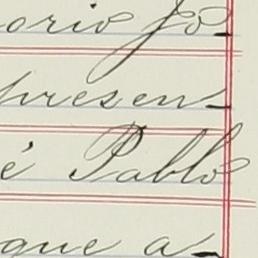 orio Jo-
presen-
é Pablo
que a-